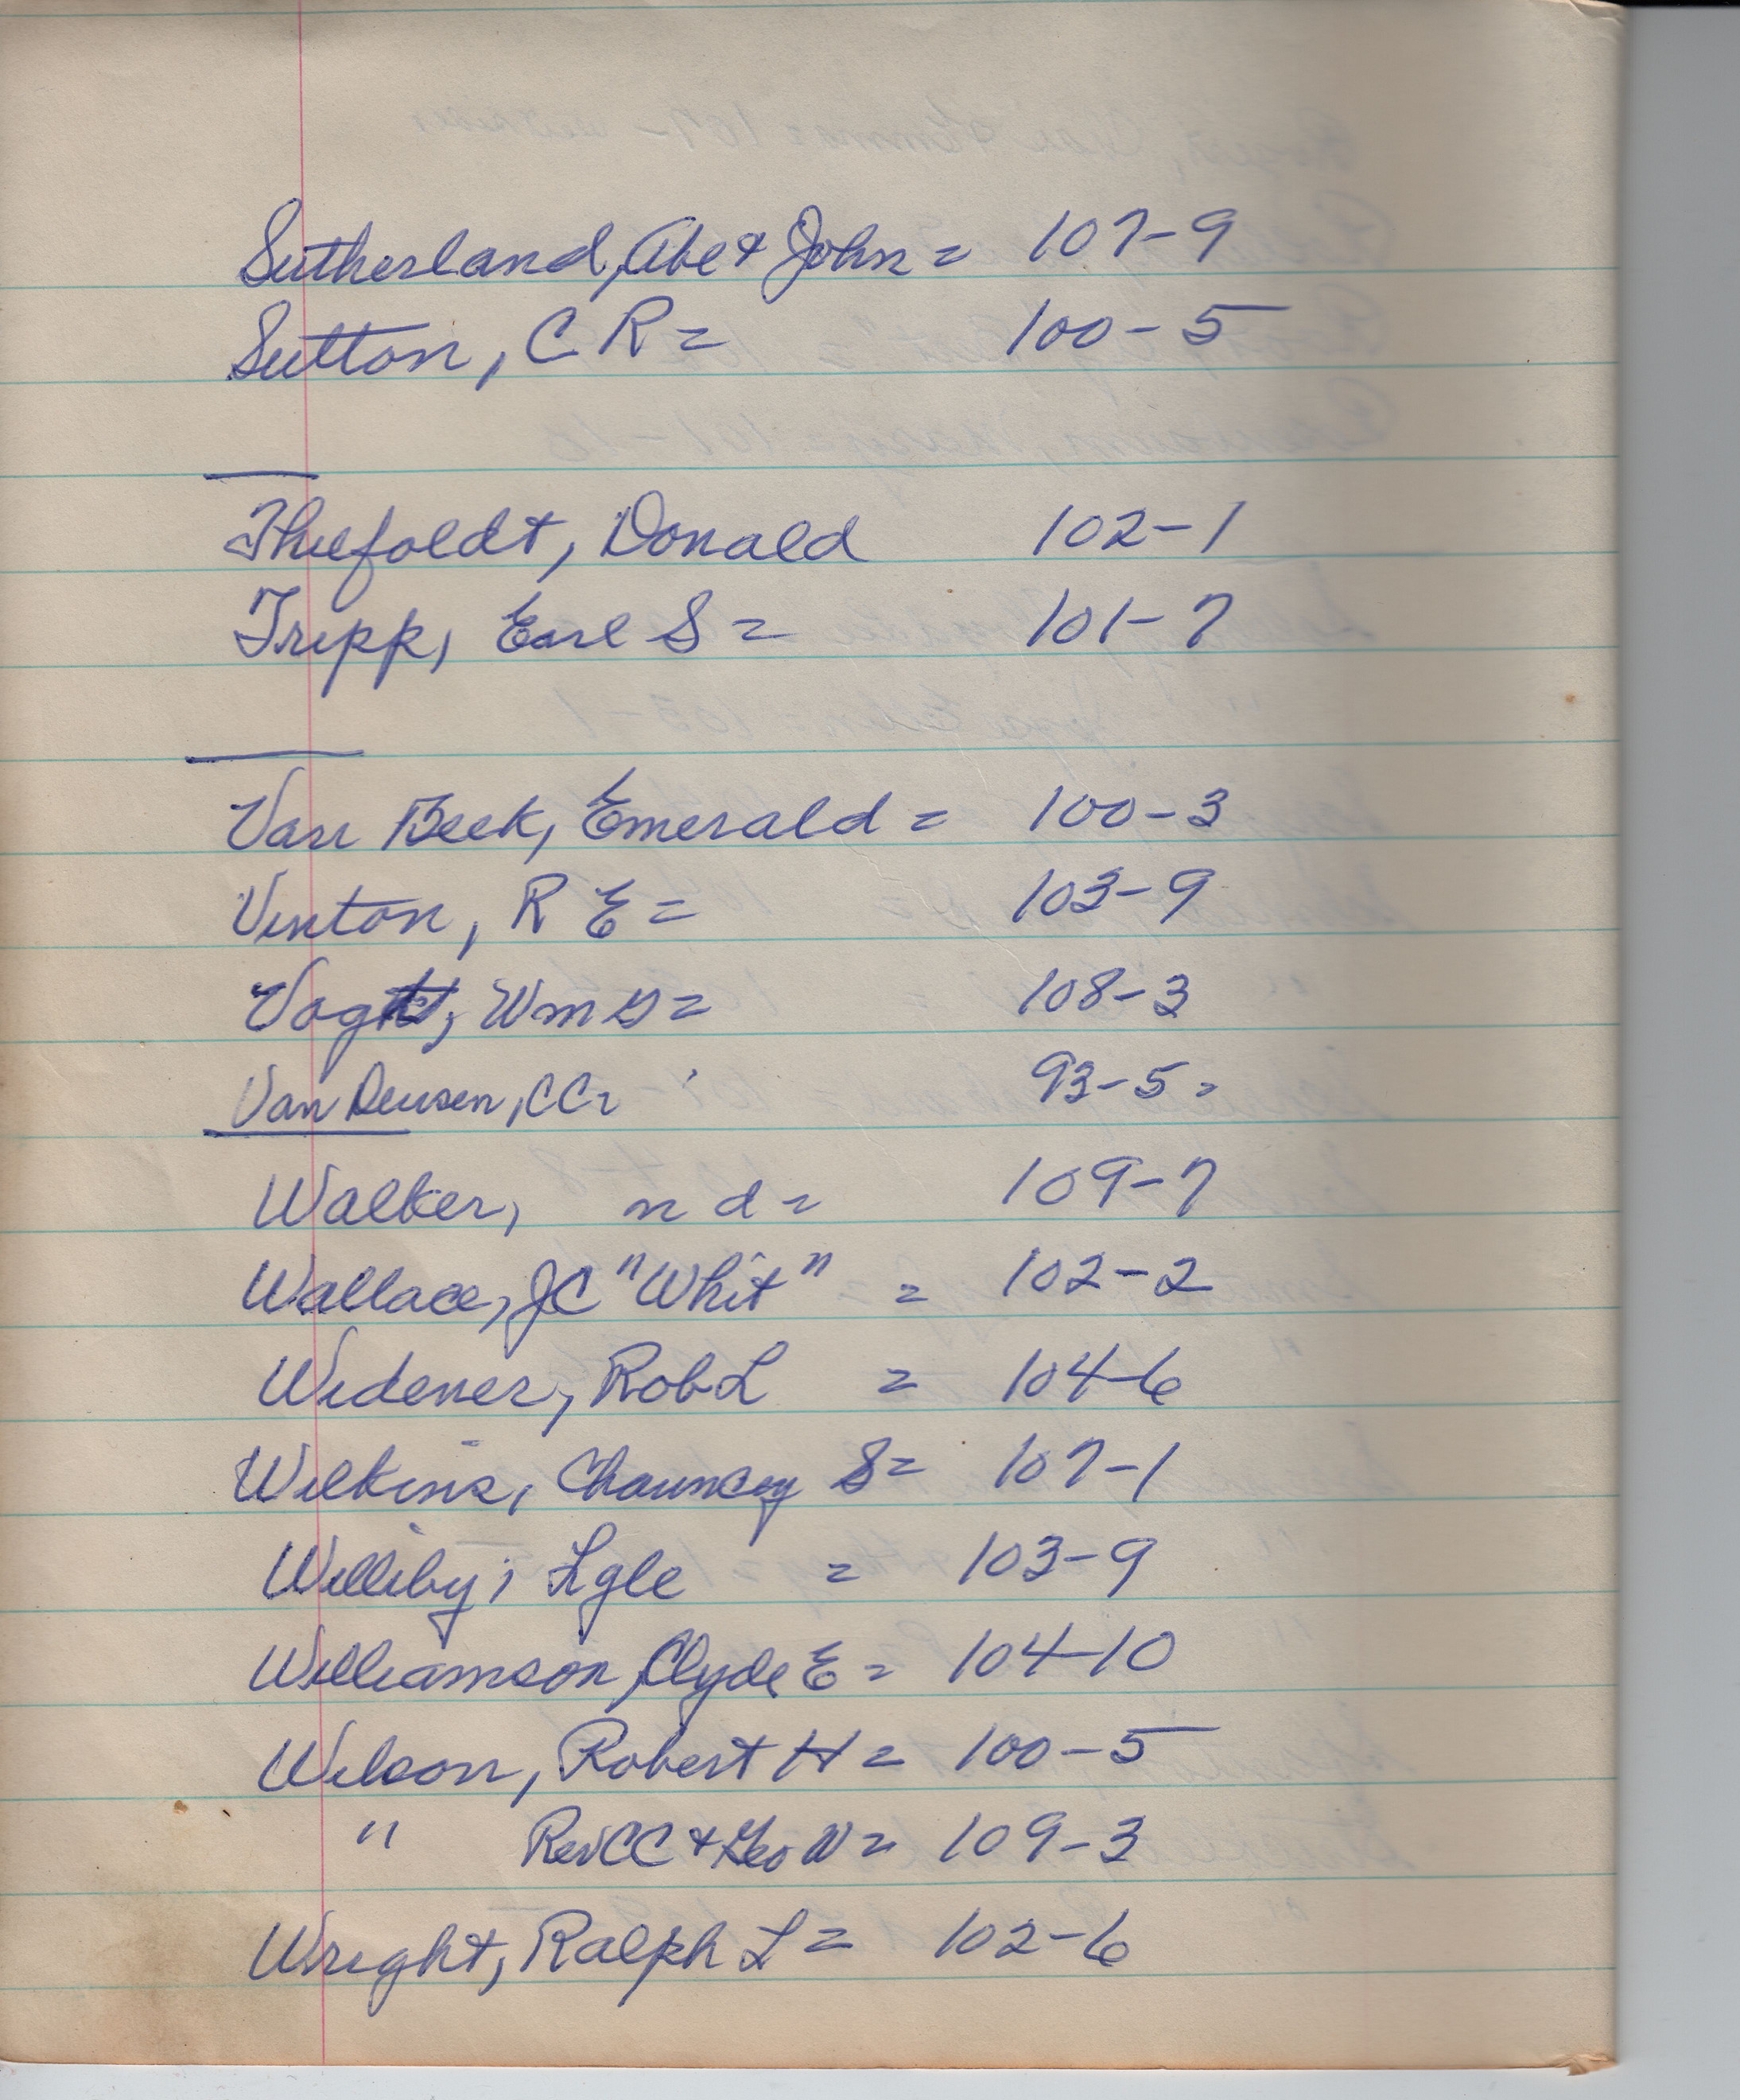 Sutherland, Abe & John = 107-9
Sutton, C R = 100-5
Thiefoldt, Donald 102-1
Tripp, Earl S = 101-7
Van Beek, Emerald = 100-3
Vinton, R E = 103-9
Vogt, Wm G = 108-3
Van Deusen, CC = 93-5 =
Walker, n d = 109-7
Wallace, JC "Whit" = 102-2
Widener, Rob L = 104-6
Wilkins, Chauncey S = 107-1
Williby, Lyle = 103-9
Williamson, Clyde E = 104-10
Wilson, Robert H = 100-5
" Rev CC & Geo W = 109-3
Wright, Ralph L = 102-6